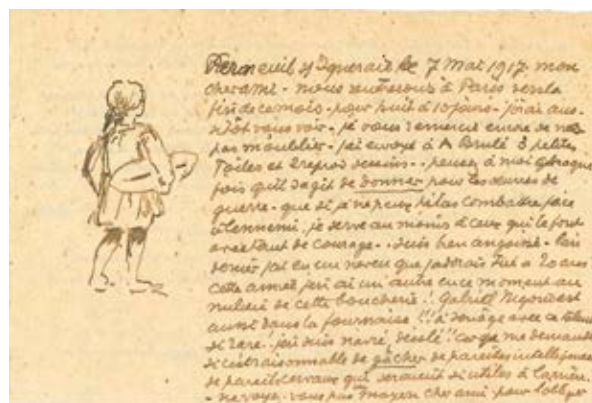 le 7 Mai 1917 mon
cher ami - nous rentrerons à Paris vers la
fin de ce mois - pour huit à 10 jours - j'irai aus-
sitôt vous voir - je vous remercie encore de ne
pas m'oublier - j'ai envoyé à A Brulé 3 petites
Toiles et 2 dessins - pensez à moi chaque
fois qu'il s'agit de donner pour les œuvres de
guerre - que si je ne peux hélas combattre face
à l'ennemi, je serve au moins à ceux qui le font
avec tant de courage - suis bien angoissé - l'an
dernier j'ai eu un neveu que j'adorais tué à 20 ans
cette année j'en ai un autre en ce moment au
milieu de cette boucherie ! Gabriel est
aussi dans la fournaise !! à son âge avec ce talent
si rare - j'en suis navré, désolé !! car je me demande
si c'est raisonnable de gâcher de pareilles intelligences
de pareils cerveaux qui seraient si utiles à l'arrière.
- ne voyez-vous pas moyen cher ami pour l'obliger